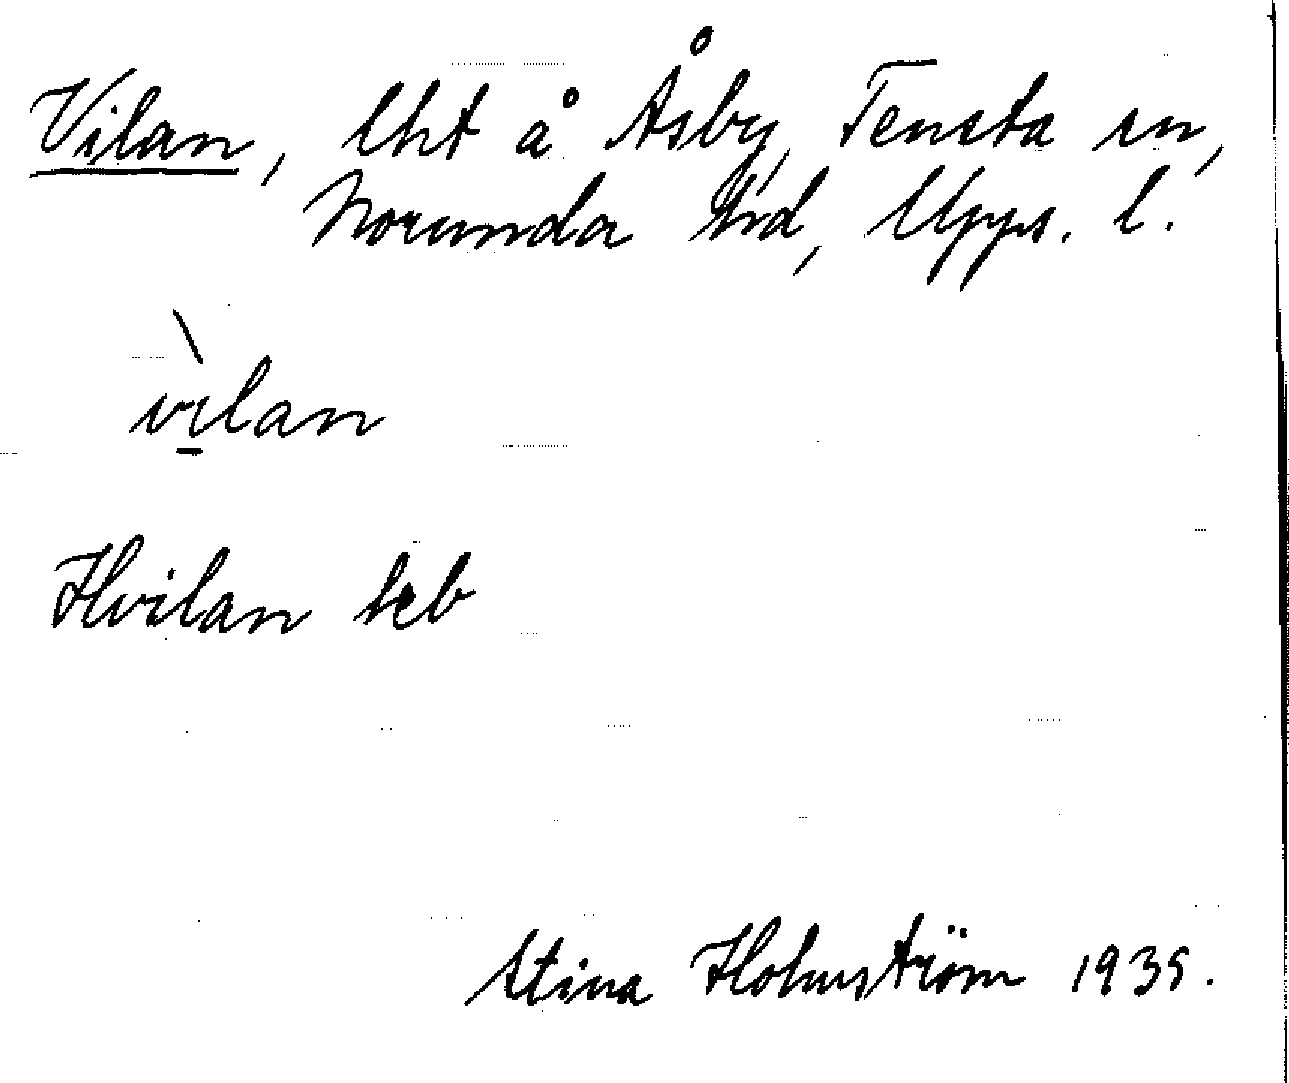 Vilan, lht å Åsby, Tensta sn,
Norunda hd, Upps. l.
vìlan
Hvilan seb
Stina Holmström 1935.